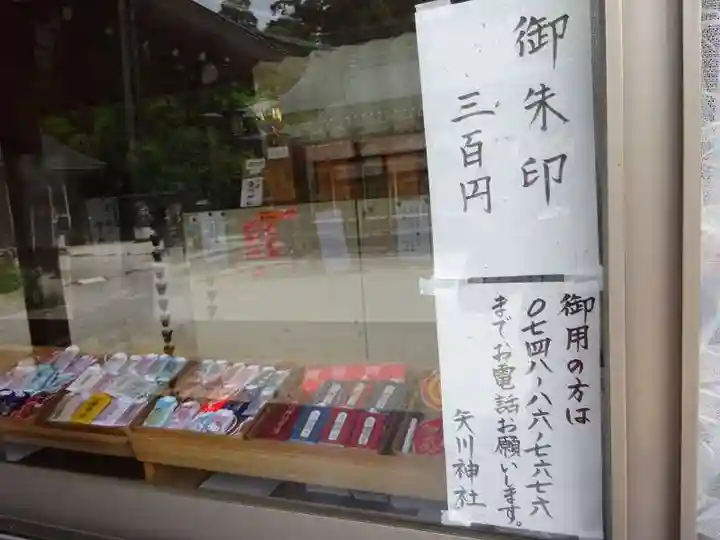 御朱印
三百円
御用の方は
〇七四八-八六-七六七六
までお電話お願いします。
矢川神社